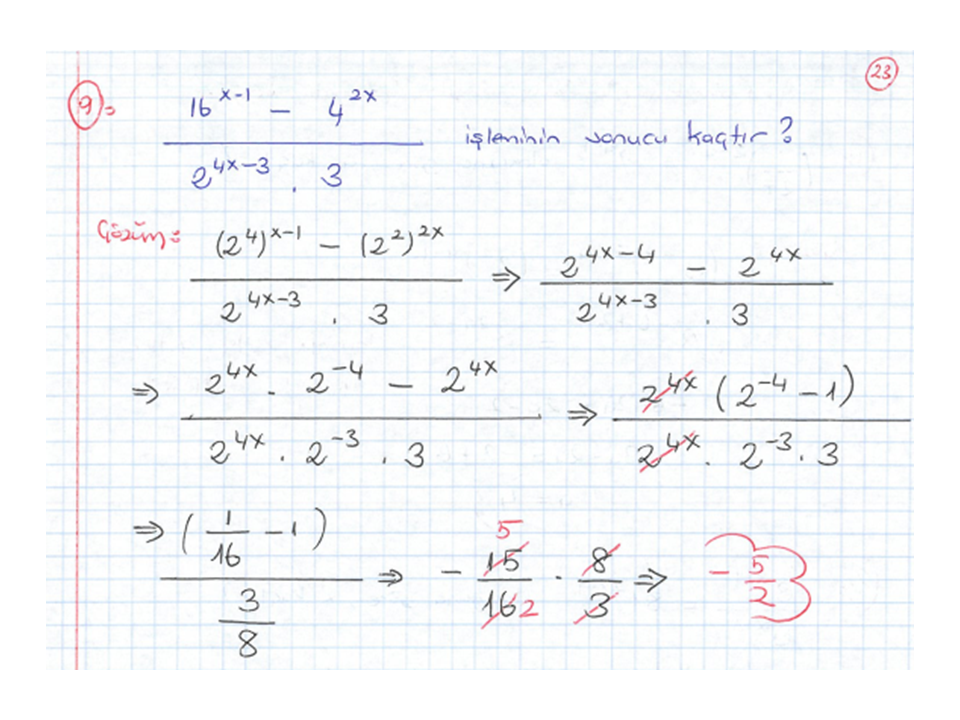 23
9= (16^(x-1) - 4^(2x)) / (2^(4x-3) . 3) işlenihin sonucu kaçtır?
Çözüm= ((2^4)^(x-1) - (2^2)^(2x)) / (2^(4x-3) . 3) ⇒ (2^(4x-4) - 2^(4x)) / (2^(4x-3) . 3)
⇒ (2^(4x) . 2^(-4) - 2^(4x)) / (2^(4x) . 2^(-3) . 3) ⇒ (2^(4x) (2^(-4) - 1)) / (2^(4x) . 2^(-3) . 3)
⇒ (1/16 - 1) / (3/8) ⇒ - 15/16 . 8/3 ⇒ - 5/2
5
2